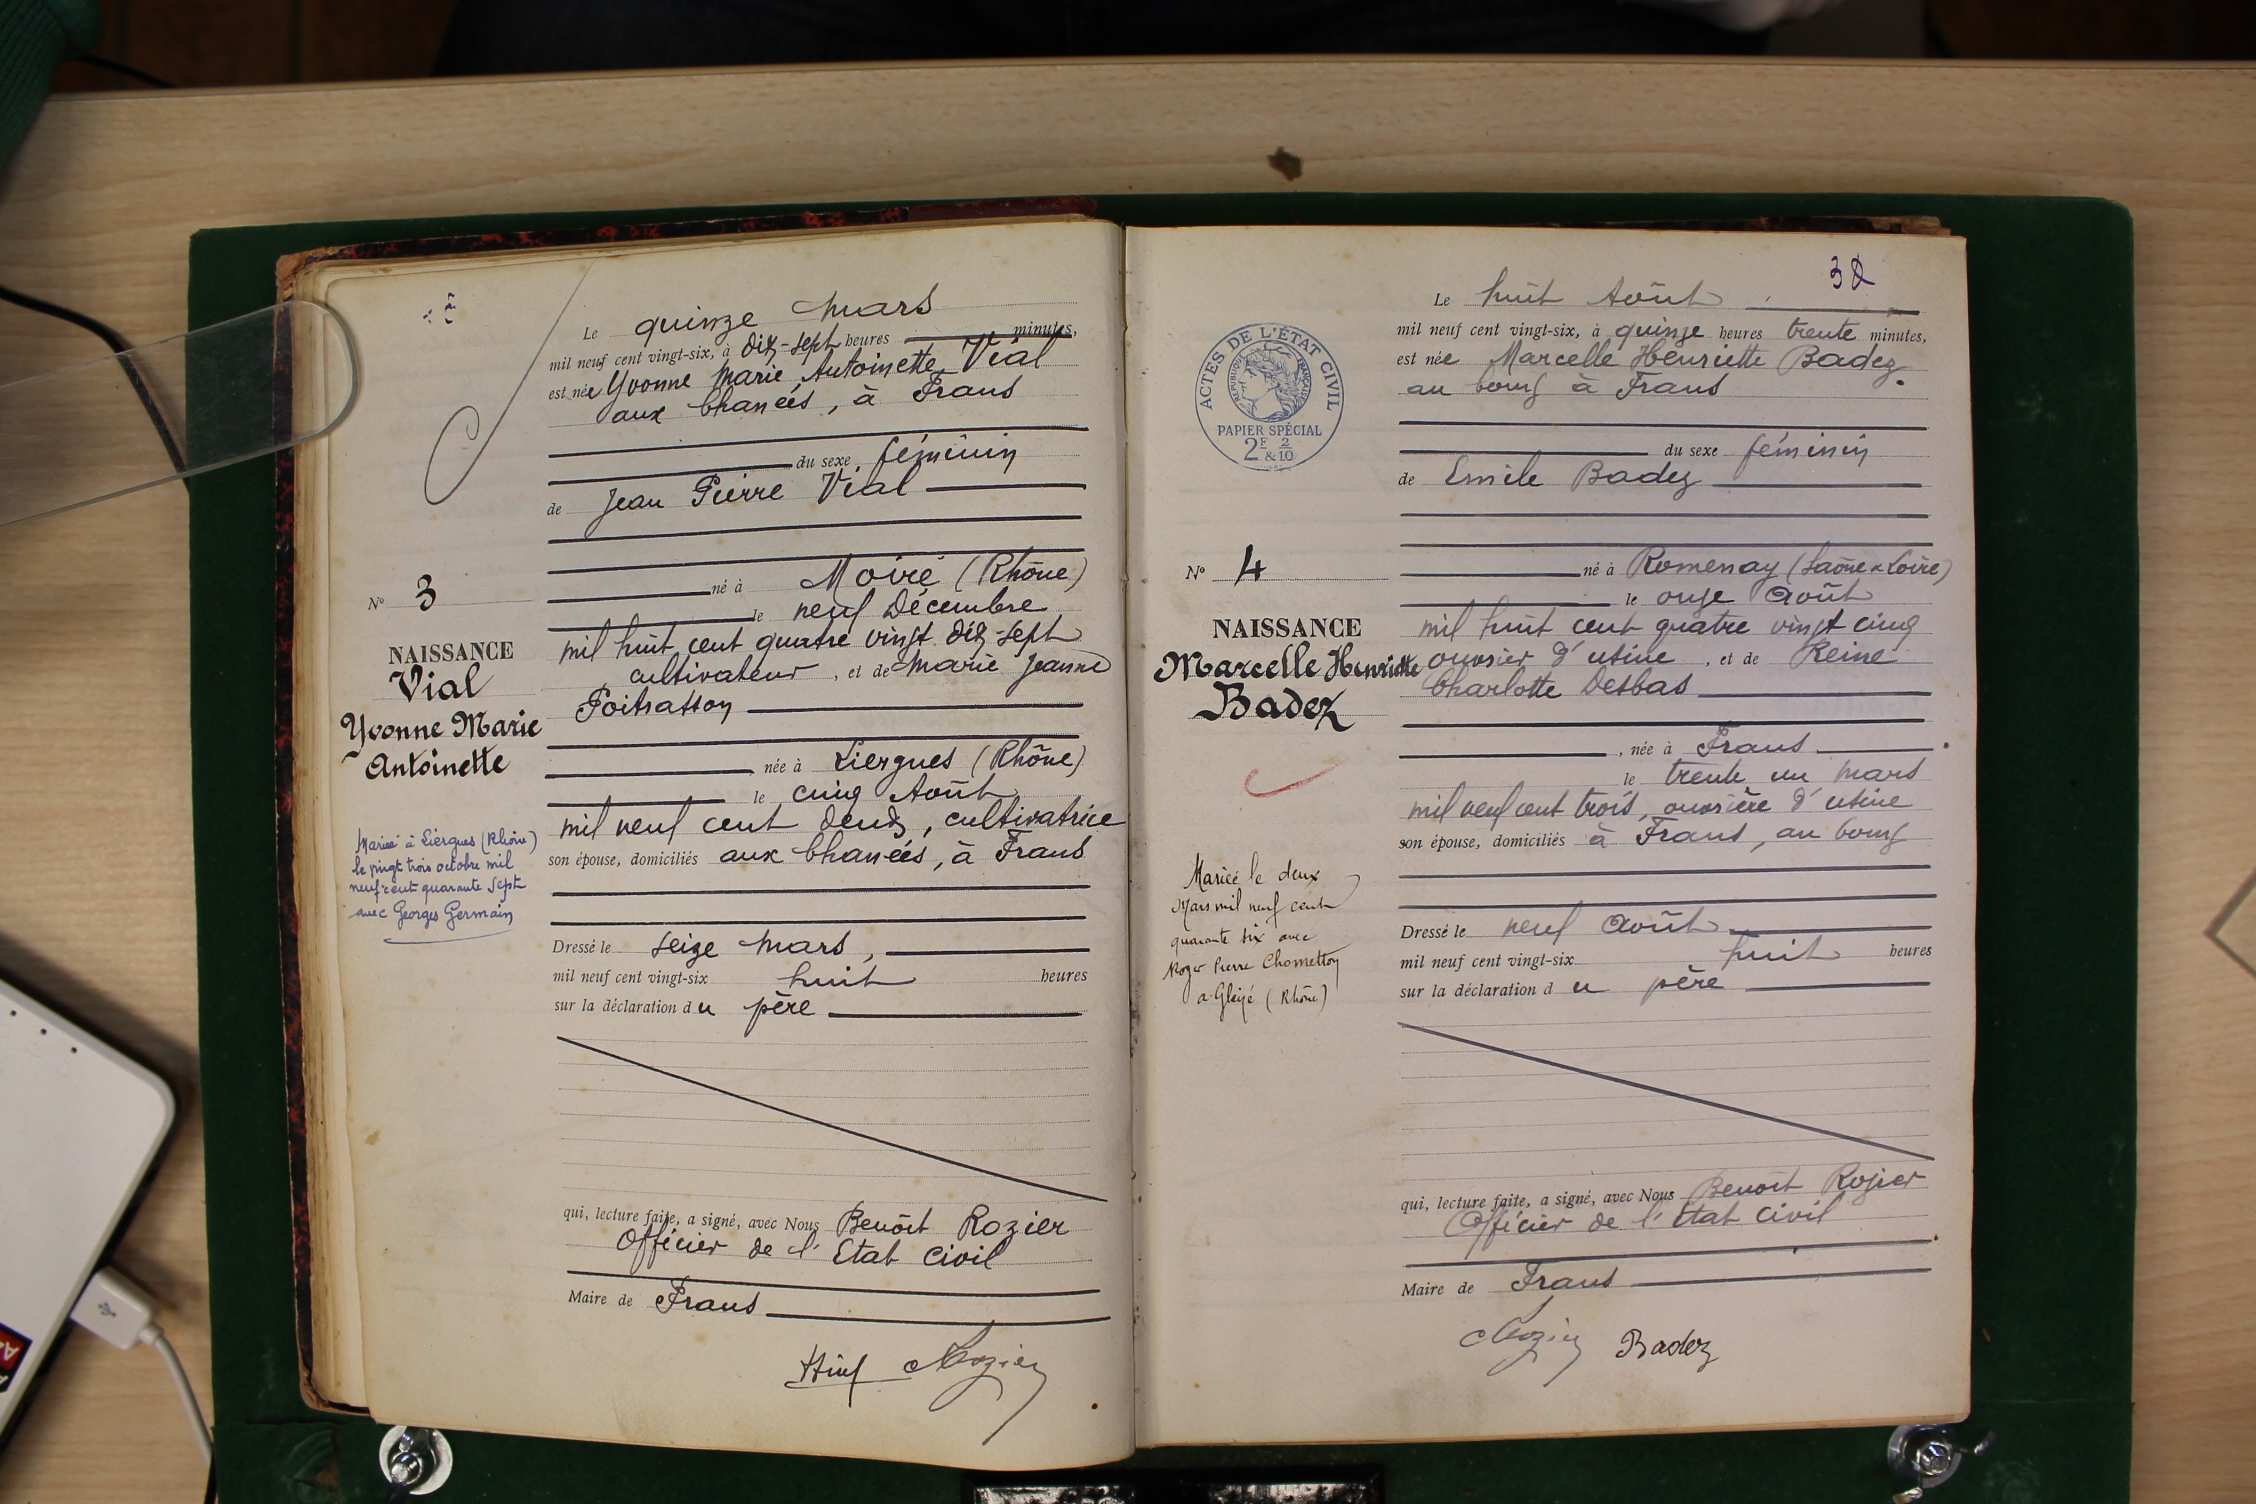 Le quinze mars
mil neuf cent vingt-six, à dix-sept heures minutes,
est née Yvonne Marie Antoinette Vial
aux Chanées, à Frans
du sexe féminin
de Jean Pierre Vial
né à Moiré (Rhône)
le neuf Décembre
mil huit cent quatre vingt dix-sept
cultivateur, et de Marie Jeanne
Poitrasson
née à Liergues (Rhône)
le cinq Août
mil neuf cent deux, cultivatrice
son épouse, domiciliés aux Chanées, à Frans
Dressé le seize mars,
mil neuf cent vingt-six huit heures
sur la déclaration du père
qui, lecture faite, a signé, avec Nous Benoît Rozier
Officier de l'Etat Civil
Maire de Frans
Rozier
N° 3
NAISSANCE
Vial
Yvonne Marie
Antoinette
Mariée à Liergues (Rhône)
le vingt trois octobre mil
neuf cent quarante sept
avec Georges Germain
32
Le huit Août
mil neuf cent vingt-six, à quinze heures trente minutes,
est née Marcelle Henriette Badez
au bourg à Frans
du sexe féminin
de Emile Badez
né à Romenay (Saône & Loire)
le onze Août
mil huit cent quatre vingt cinq
ouvrier d'usine, et de Reine
Charlotte Desbas
, née à Frans
le trente un mars
mil neuf cent trois, ouvrière d'usine
son épouse, domiciliés à Frans, au bourg
Dressé le neuf Août
mil neuf cent vingt-six huit heures
sur la déclaration du père
qui, lecture faite, a signé, avec Nous Benoît Rozier
Officier de l'Etat Civil
Maire de Frans
Rozier Badez
ACTES DE L'ÉTAT CIVIL
RÉPUBLIQUE FRANÇAISE
PAPIER SPÉCIAL
2F & 2/10
N° 4
NAISSANCE
Marcelle Henriette
Badez
Mariée le deux
Mars mil neuf cent
quarante six avec
Roger Pierre Chometton
à Gleizé (Rhône)